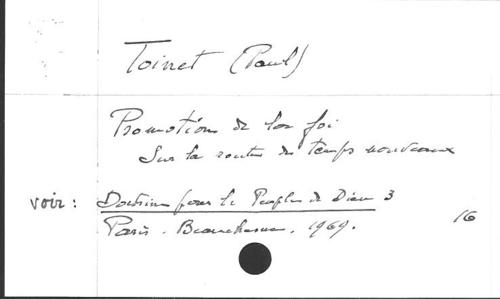 Toinet (Paul)
Promotion de la foi
Sur la route des temps nouveaux
voir : Doctrine pour le Peuple de Dieu 3
Paris. Beauchesne. 1969. 16